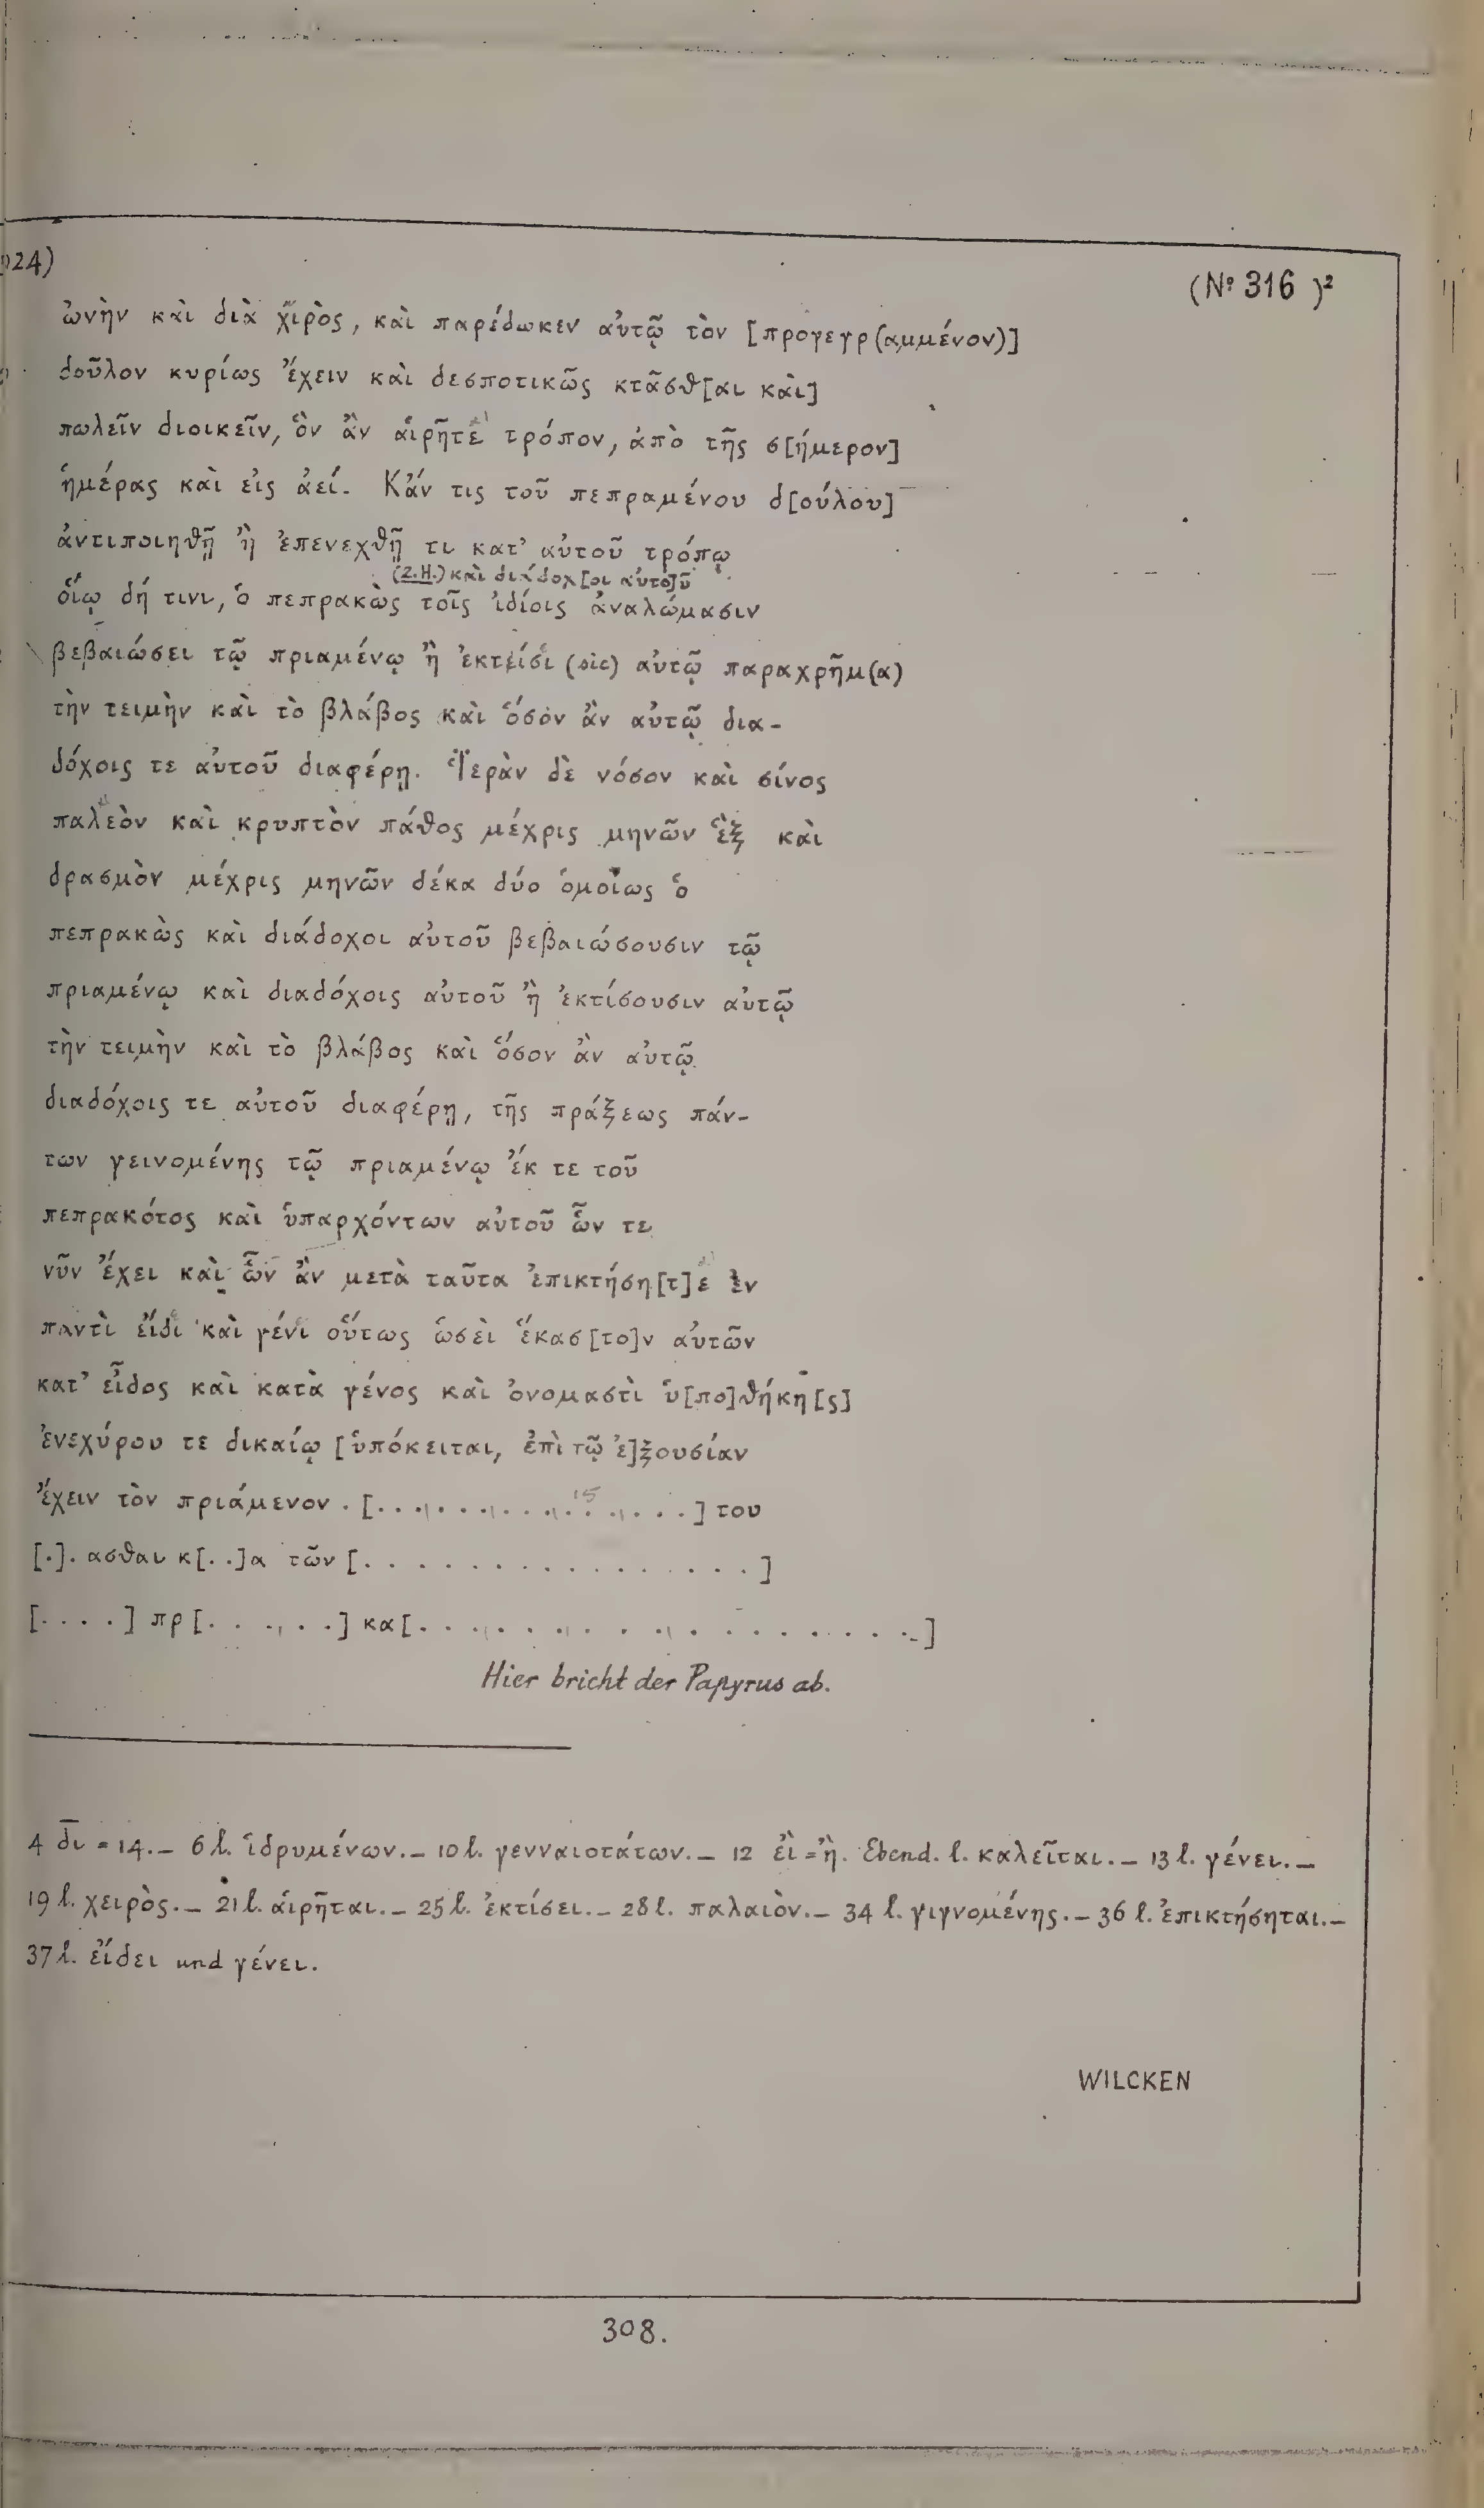 024)
(Nº 316 )²
ὠνὴν καὶ διὰ χιρὸς, καὶ παρέδωκεν αὐτῷ τὸν [προγεγρ(αμμένον)]
δοῦλον κυρίως ἔχειν καὶ δεσποτικῶς κτᾶσθ[αι καὶ]
πωλεῖν διοικεῖν, ὃν ἂν αἱρῆτε τρόπον, ἀπὸ τῆς σ[ήμερον]
ἡμέρας καὶ εἰς ἀεί. Κἄν τις τοῦ πεπραμένου δ[ούλου]
ἀντιποιηθῇ ἢ ἐπενεχθῇ τι κατ' αὐτοῦ τρόπῳ
(2.H.) καὶ διάδοχ[οι αὐτο]ῦ
οἵῳ δή τινι, ὁ πεπρακὼς τοῖς ἰδίοις ἀναλώμασιν
βεβαιώσει τῷ πριαμένῳ ἢ ἐκτείσι (sic) αὐτῷ παραχρῆμ(α)
τὴν τειμὴν καὶ τὸ βλάβος καὶ ὅσον ἂν αὐτῷ δια-
δόχοις τε αὐτοῦ διαφέρῃ. Ἱερὰν δὲ νόσον καὶ σίνος
παλεὸν καὶ κρυπτὸν πάθος μέχρις μηνῶν ἓξ καὶ
δρασμὸν μέχρις μηνῶν δέκα δύο ὁμοίως ὁ
πεπρακὼς καὶ διάδοχοι αὐτοῦ βεβαιώσουσιν τῷ
πριαμένῳ καὶ διαδόχοις αὐτοῦ ἢ ἐκτίσουσιν αὐτῷ
τὴν τειμὴν καὶ τὸ βλάβος καὶ ὅσον ἂν αὐτῷ
διαδόχοις τε αὐτοῦ διαφέρῃ, τῆς πράξεως πάν-
των γεινομένης τῷ πριαμένῳ ἔκ τε τοῦ
πεπρακότος καὶ ὑπαρχόντων αὐτοῦ ὧν τε
νῦν ἔχει καὶ ὧν ἂν μετὰ ταῦτα ἐπικτήση[τ]ε ἐν
παντὶ εἴδι καὶ γένι οὕτως ὡσεὶ ἕκασ[το]ν αὐτῶν
κατ' εἶδος καὶ κατὰ γένος καὶ ὀνομαστὶ ὑ[πο]θήκη[ς]
ἐνεχύρου τε δικαίῳ [ὑπόκειται, ἐπὶ τῷ ἐ]ξουσίαν
ἔχειν τὸν πριάμενον . [. . . . . . . . . . . . . . .] του
[.]. ασθαι κ[. .]α τῶν [. . . . . . . . . . . . . . .]
[. . . .] πρ[. . . . . .] κα[. . . . . . . . . . . . . . . . . .]
Hier bricht der Papyrus ab.
4 δ̅ι̅ = 14. _ 6 l. ἱδρυμένων. _ 10 l. γενναιοτάτων. _ 12 εἲ = ἢ. Ebend. l. καλεῖται. _ 13 l. γένει. _
19 l. χειρὸς. _ 21 l. αἱρῆται. _ 25 l. ἐκτίσει. _ 28 l. παλαιὸν. _ 34 l. γιγνομένης. _ 36 l. ἐπικτήσηται. _
37 l. εἴδει und γένει.
WILCKEN
308.